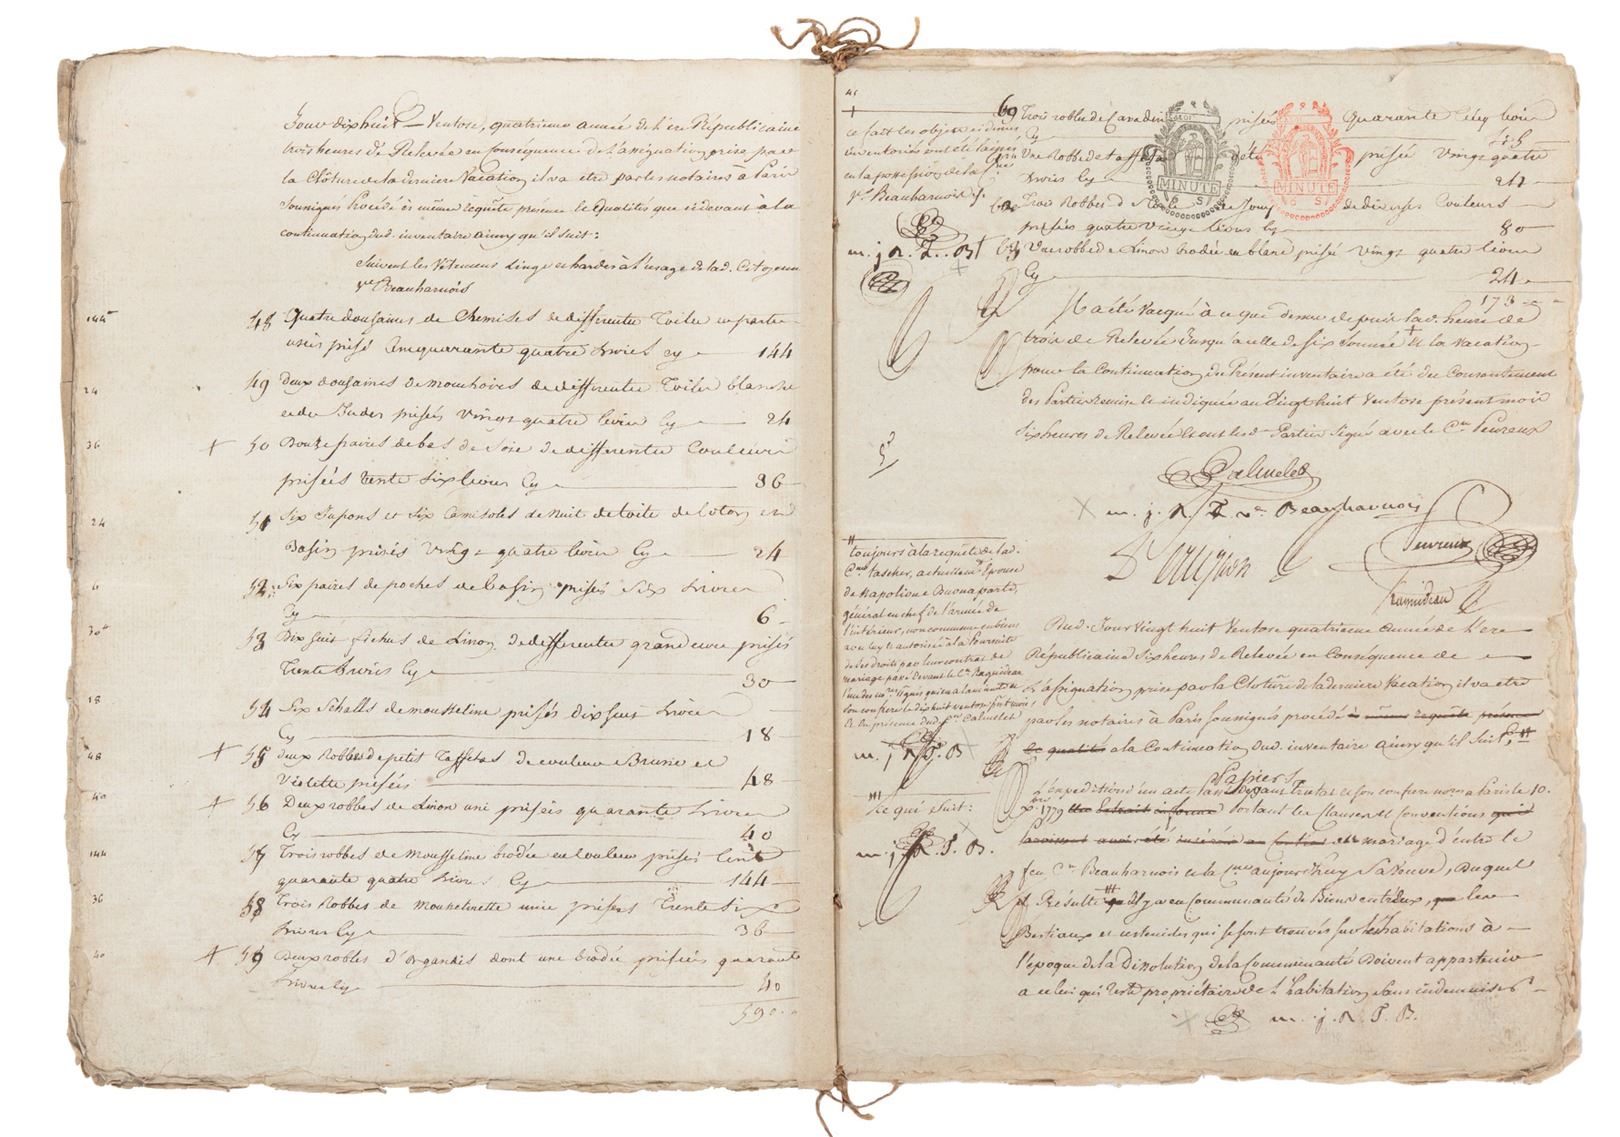 Jour dix huit Ventose, quatrieme année de l'ere Républicaine
trois heures de Relevée en Conséquence de l'assignation prise par
la Clôture de la derniere Vacation il va etre par les notaires à Paris
soussignés Procédé ès mêmes requête présence & qualités que cidevant à la
continuation dud. inventaire ainsy qu'il suit:
Suivent les Vêtemens Linge et hardes à l'usage de lad. Citoyenne
Ve. Beauharnois
144 48 Quatre douzaines de Chemises de differente Toile en partie
usées prisé Cent quarante quatre Livres cy 144
24 49 Deux douzaines de mouchoirs de differente Toile blanche
et des Indes prisés Vingt quatre livres Cy 24
36 + 50 Douze paires de bas de Soie de differentes Couleurs
prisées trente six livres Cy 36
24 51 Six Jupons et Six Camisoles de Nuit de toile de Coton et
Basin prisés Vingt quatre livres Cy 24
6 52 Six paires de poches de basin prisés Six Livres
Cy 6
30 53 Dix huit fichus de Linon de differente grandeur prisés
Trente Livres Cy 30
18 54 Six Schalls de mousseline prisés dix huit Livres
Cy 18
48 + 55 deux Robbes de petit Taffetas de couleur Brune et
Violette prisées 48
40 + 56 Deux robbes de Linon uni prisés quarante Livres
Cy 40
144 57 Trois robbes de Mousseline brodée en Couleur prisées Cent
quarante quatre Livres Cy 144
36 58 Trois Robbes de Mousselinette unie prisées Trente Six
Livres Cy 36
40 + 59 Deux robbes d'organdis dont une brodée prisées quarante
Livres Cy 40
590
60 Trois robbes de prisées quarante Cinq livres
Cy 45
Une Robbe de taffetas d'été prisée Vingt quatre
Livres Cy 24
Trois Robbes de de diverses Couleurs
prisées quatre Vingt Livres Cy 80
63 Une robbe de Linon brodée en blanc prisée Vingt quatre livres
Cy 24
173
+
Ce fait les objets cidevant
inventoriés ont été laissés
en la possession de la Cne
Ve. Beauharnois
m. j. R. T. B
Il a été Vacqué à ce que dessus depuis lad. heure de
trois de Relevée Jusqu'à celle de six Sonnée + & la Vacation
pour la Continuation du Présent inventaire a été du Consentement
des Parties remise & indiquée au Vingt huit Ventose présent mois
Six heures de Relevée & ont lesd. Parties Signé avec le Cen. Peureux
Calmelet
m. j. R. T. ve Beauharnois
Peureux
Raguideau
Dud. Jour Vingt huit Ventose quatrieme année de l'ere
Républicaine Six heures de Relevée en Conséquence de
L'assignation prise par la Clôture de la derniere Vacation il va etre
par les notaires à Paris soussignés procédé ès mêmes requête présence
et qualités à la Continuation dud. inventaire ainsy qu'il suit,
toujours à la requête de lad.
Cne Tascher, actuellement Epouse
de Napolione Buonaparte,
général en chef de l'armée de
l'intérieur, non commune en biens
avec luy et autorisée à la Poursuite
de ses droits par leur contrat de
mariage passé devant le Cen Raguideau
l'un des notaires Soussignés qui en a la minute et
son confrere le dix huit ventose présent mois
& en présence dud. Cen Calmelet
m. j. R. T. B
Papiers
L'expedition d'un acte passé devant Trutat et son confrere notaires à Paris le 10.
Xbre 1779 Un Extrait informe portant les Clauses & Conventions qui
paroissent avoir été insérées au Contrat de mariage d'entre le
feu Cen Beauharnois et la Cne aujourd'huy Sa Veuve, Duquel
il Résulte qu'il y a eu Communauté de Biens entr'eux, que les
ce qui suit:
m. j. R. T. B.
Bestiaux et ustenciles qui se sont trouvés sur les habitations à
l'époque de la Dissolution de la Communauté Doivent appartenir
a celui qui reste propriétaire de l'habitation sans indemnité
m. j. R. T. B.
MINUTE
MINUTE